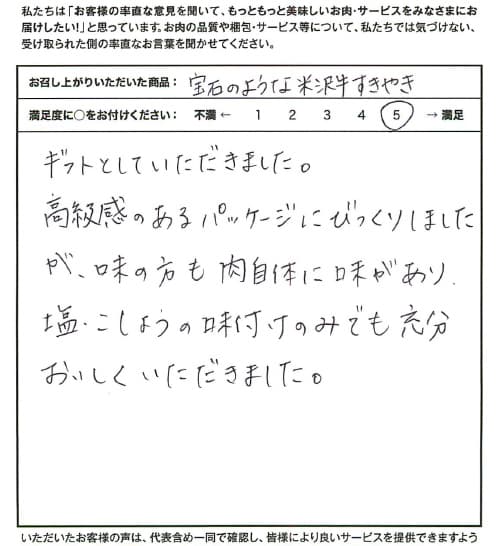 私たちは「お客様の率直な意見を聞いて、もっともっと美味しいお肉・サービスをみなさまにお
届けしたい!」と思っています。お肉の品質や梱包・サービス等について、私たちでは気づけない、
受け取られた側の率直なお言葉を聞かせてください。
お召し上がりいただいた商品： 宝石のような米沢牛すきやき
満足度に○をお付けください： 不満 ← 1 2 3 4 5 → 満足
ギフトとしていただきました。
高級感のあるパッケージにびっくりしました
が、味の方も肉自体に味があり、
塩・こしょうの味付けのみでも充分
おいしくいただきました。
いただいたお客様の声は、代表含め一同で確認し、皆様により良いサービスを提供できますよう